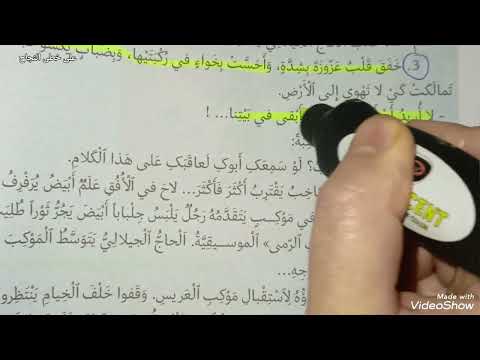 على خطى النجاح
3. خَفَقَ قَلْبُ عَزُوزَةَ بِشِدَّةٍ، وَأَحَسَّتْ بِخَواءٍ في رُكْبَتَيْها، وَبِضَبابٍ يَكْسو
تَمالَكَتْ كَيْ لا تَهْوي إِلى ٱلْأَرْضِ.
- لا أُريدُ أَبْقى في بَيْتِنا... !
لَوْ سَمِعَكِ أَبوكِ لَعاقَبَكِ عَلى هَذا ٱلْكَلامِ.
يَقْتَرِبُ أَكْثَرَ فَأَكْثَرَ... لاحَ في ٱلْأُفُقِ عَلَمٌ أَبْيَضُ يُرَفْرِفُ
في مَوْكِبٍ يَتَقَدَّمُهُ رَجُلٌ يَلْبَسُ جِلْباباً أَبْيَضَ يَجُرُّ ثَوْراً
ٱلرّمى» ٱلْموسـيـقِيَّةُ. ٱلْحاجُّ ٱلْجيلالِيُّ يَتَوَسَّطُ ٱلْمَوْكِبَ
لِٱسْتِقْبالِ مَوْكِبِ ٱلْعَريسِ. وَقَفوا خَلْفَ ٱلْخِيامِ
ACCENT
Made with
VideoShow